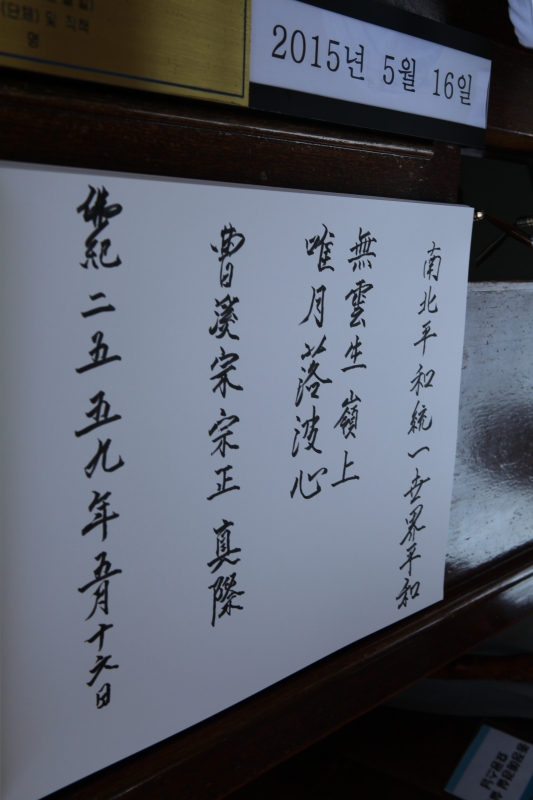 (단체) 및 직책
명
2015년 5월 16일
南北平和統一世界平和
無雲生嶺上
唯月落波心
曹溪宗宗正 真際
佛紀 二五五九年 五月十六日